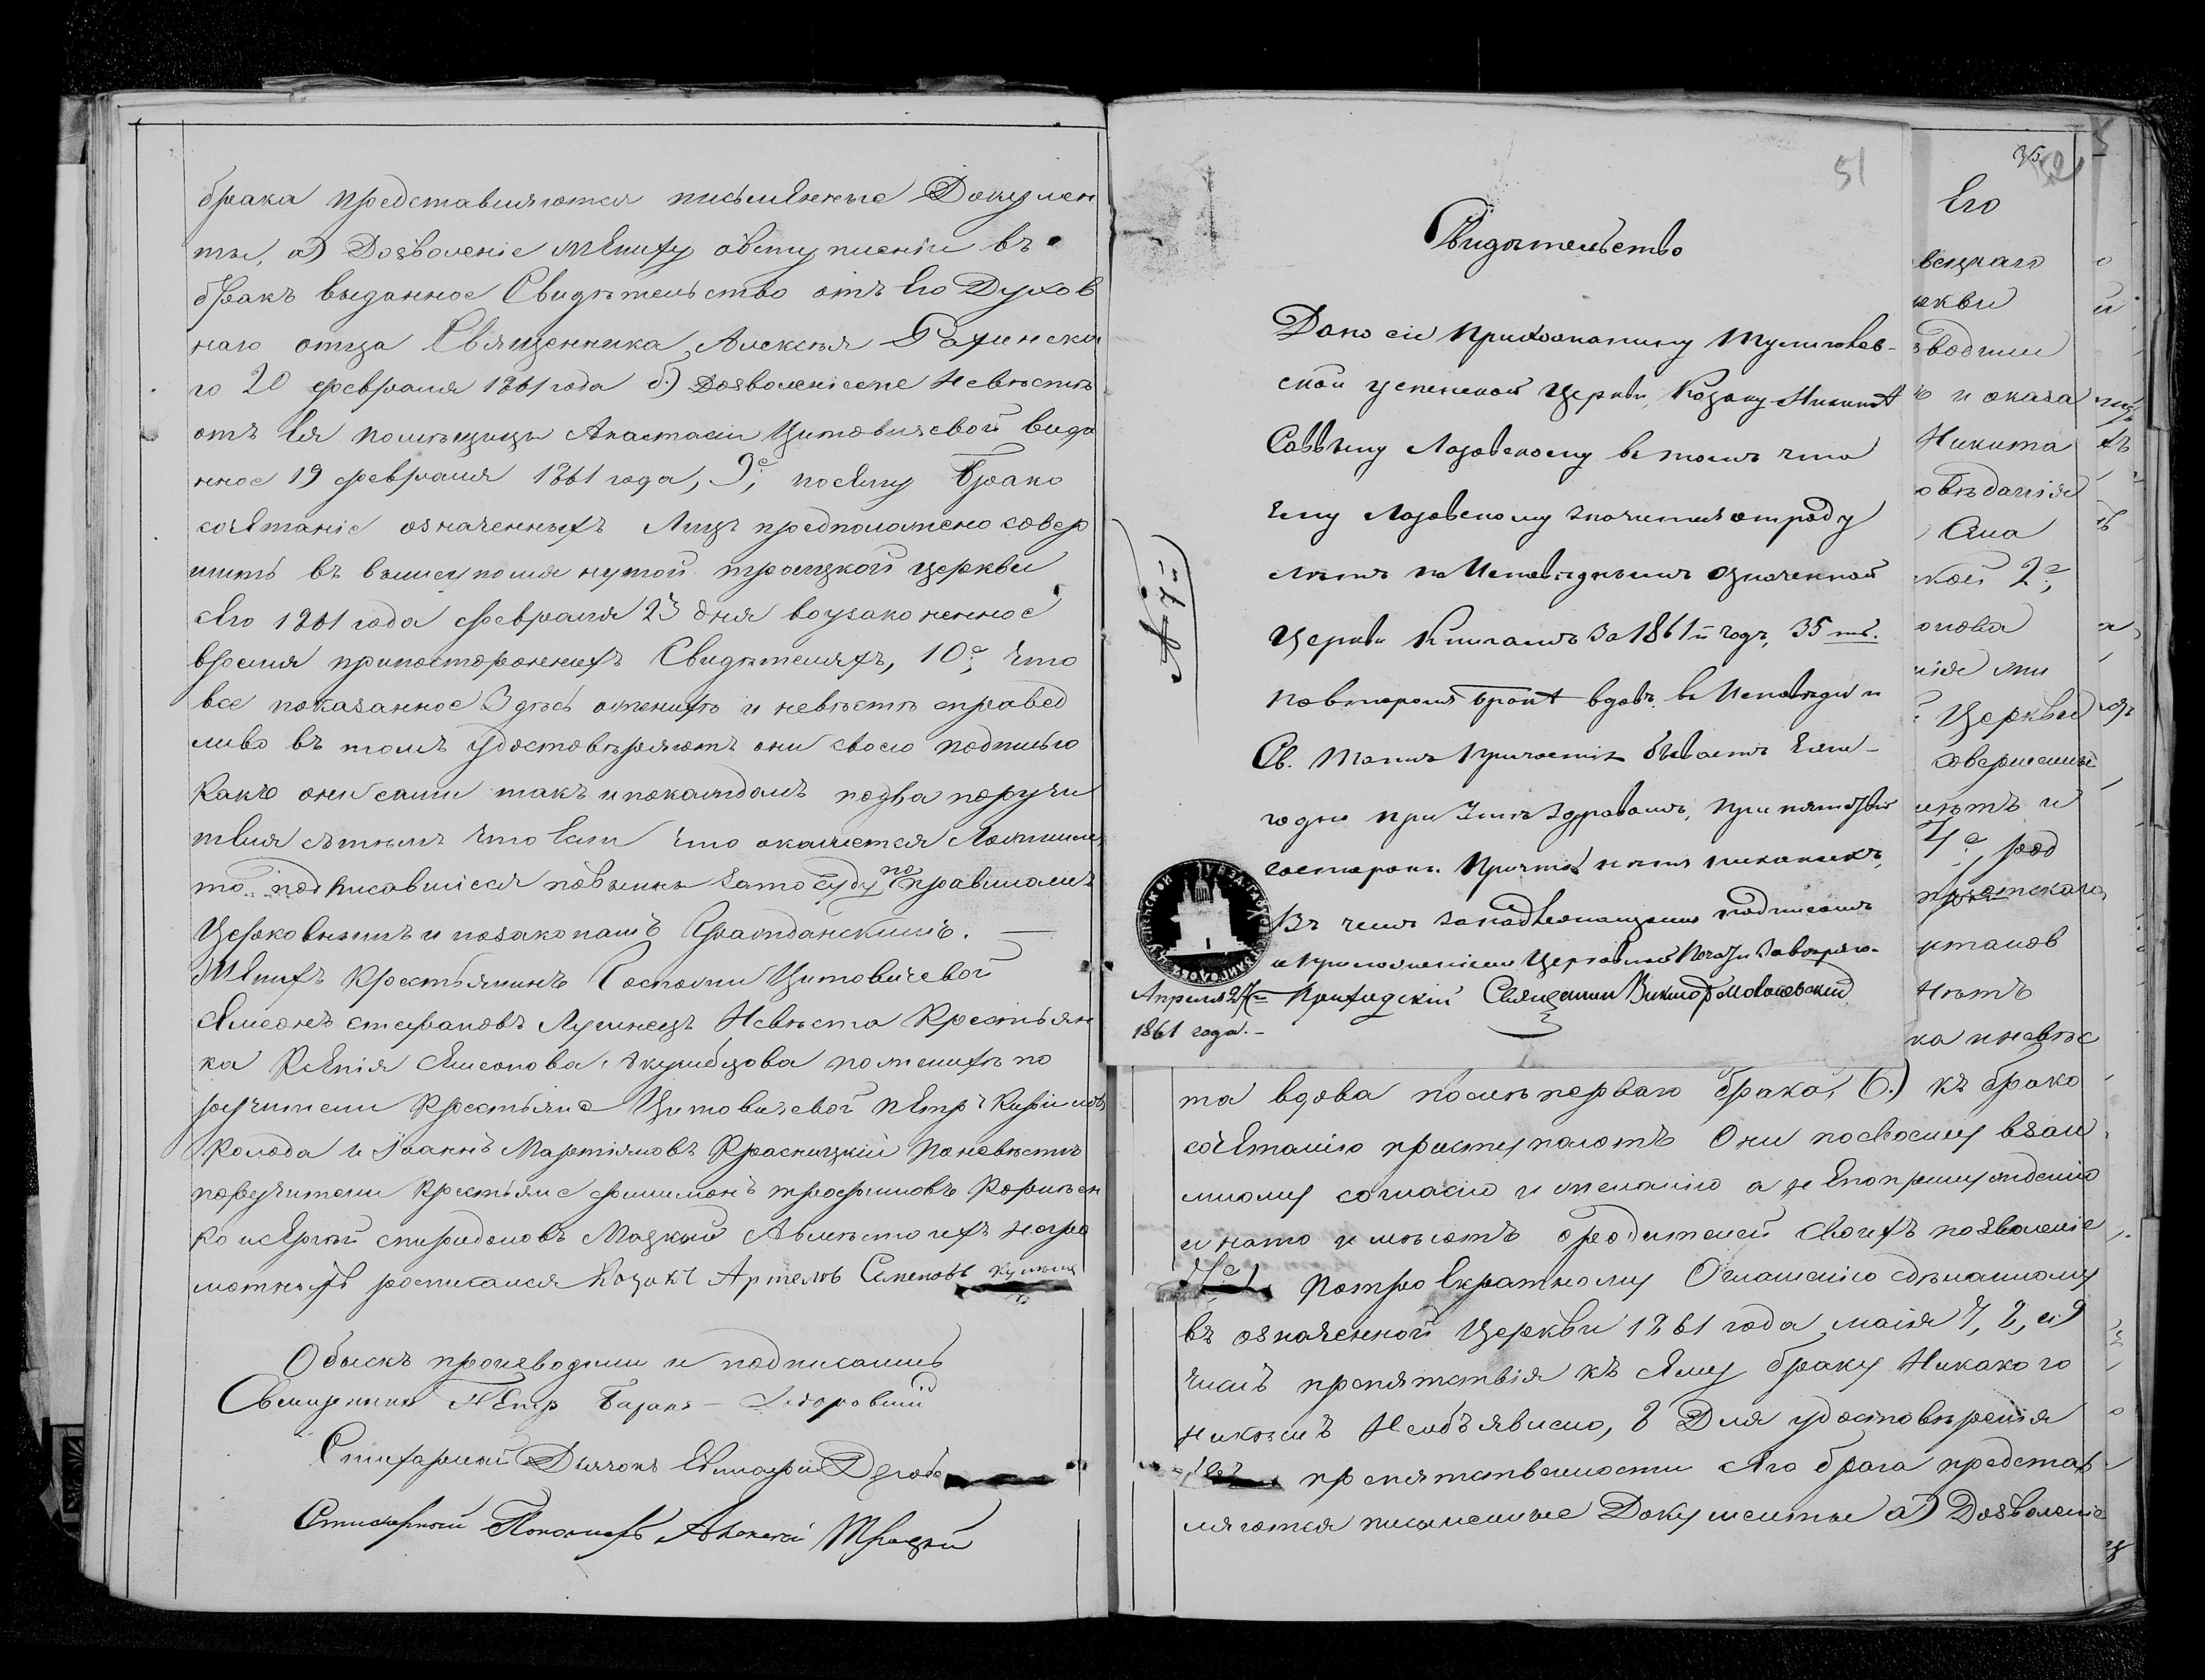 брака представляются письменные Докумен
ты, а) Дозволеніе жениху овступленіи въ
бракъ выданное Свидѣтельство отъ Его Духов
наго отца Священника Алексѣя
го 20 февраля 1861 года б.) Дозволеніеже Невѣстѣ
отъ Ея помѣщицы Анастасіи Цитовичевой выда
нное 19 февраля 1861 года, 9е, посему Брако
сочетаніе означенныхъ Лицъ предположено совер
шить въ вышеупомянутой троицкой церкви
сего 1861 года февраля 23 дня воузаконенное
время припостороннихъ Свидѣтеляхъ, 10е, что
все показанное Здѣсь оженихѣ и невѣстѣ справед
ливо въ томъ удостовѣряютъ они своею подписью
какъ они сами такъ и покаждомъ подва поручи
теля сътѣмъ что Если что окажется Ложнымъ
то подписавшіеся повинны зато суду по правиламъ
Церковнымъ и позаконамъ Гражданскимъ. —
Женихъ крестьянинъ Госпожи Цитовичевой
Симеонъ стефановъ Лугинецъ Невѣста Крестьян
ка Ксенія Симеонова Якушевцова пожениху по
ручители Крестьяне Цитовичевой Петръ Кириловъ
Колода и Іоаннъ Мартіяновъ Красницкій поневѣстѣ
поручители Крестьяне филимонъ трофимовъ Корнѣен
ко и Сергѣй спиридоновъ Мацкий Авмѣсто ихъ негра
мотныхъ росписался Козакъ Артемъ Семеновъ
Обыскъ производили и подписались
Священникъ Петръ Базанъ–
Стихарный Дьячокъ Евтихій
Стихарный Пономарь Алексѣй Троцкій
51
Свидѣтельство
Дано сіе Прихожанину Тулиголов–
ской успенской Церкви, Козаку Никитѣ
Саввину Лазовскому въ томъ что
Ему Лазовскому значится отроду
лѣтъ по Исповѣднымъ означенной
Церкви Книгамъ За 1861й годъ, 35ть.
повторомъ бракѣ вдовъ. въ Исповѣди и
Св. Таинъ Причастія бываетъ Еже–
годно ПриЗемъ здравомъ, Препятствія
состороны Причта нѣтъ никакихъ,
Въ чемъ занадлежащимъ подписомъ
и приложеніемъ Церковной Печати Завѣряю–
Апреля 27– Приходскій Священникъ Викторъ
1861 года.–
№ 7й
35
Его
вецкаго
ркви
зводили
ъ и оказа
Никита
овѣданія
Она
кой 2е,
онова
нія жи
Церкви
совершенные
имѣтъ и
4е, род
ятскаго,
ртамов
Нѣтъ
ка и невѣс
та вдова послѣ перваго брака, 6.) къ брако
сочетанію приступаютъ Они посвоему взаи
мному согласію и желанію а не Попринужденію
и нато имѣютъ ородителей своихъ позволеніе
7е, Потроекратному Оглашенію сдѣланному
въ означенной Церкви 1861 года маія 7, 8, и 9
числъ препятствія къ сему браку Никакого
никѣмъ Необъявлено, 8 Для удостовѣренія
безпрепятственности сего брака представ
ляются письменные Документы а) Дозволеніе